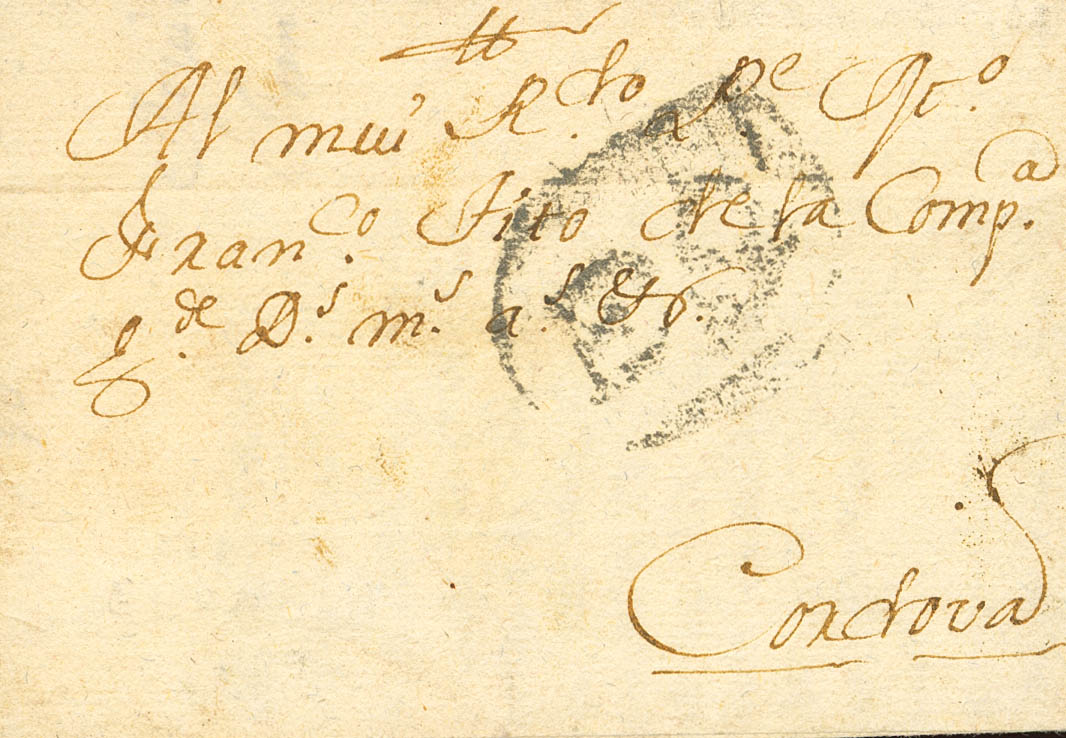 Al mui R.do P.e Rt.o
Fran.co Tito de la Comp.a
g.de D.s m.s a.s &c.
Cordova